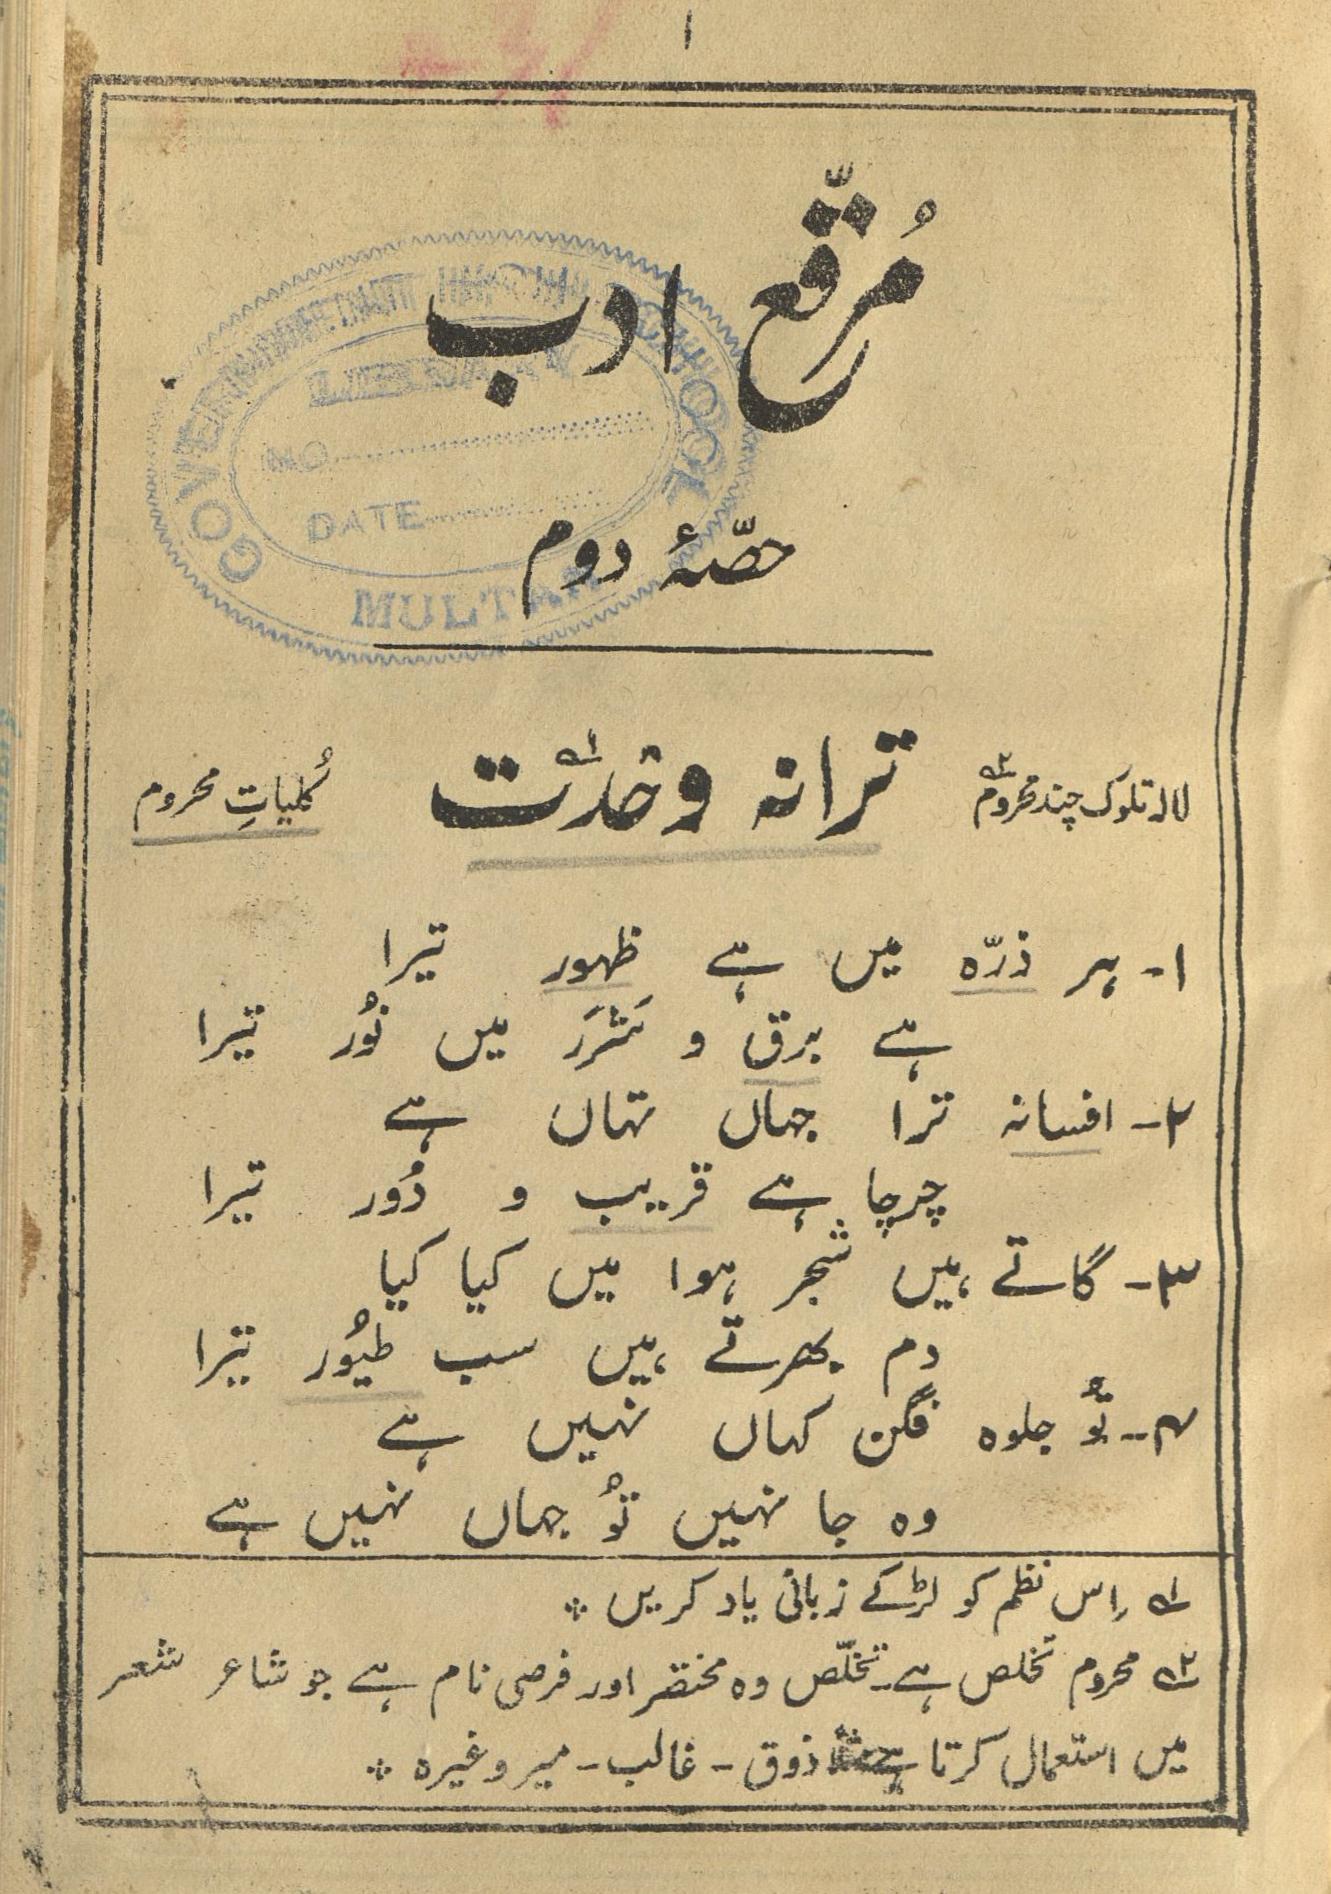 ۱
مُرقّع ادب
حصّۂ دوم
GOVERNMENT HIGH SCHOOL
LIBRARY
NO
DATE
MULTAN
لالہ تلوک چند محروم ۲؎ ترانہ وحدت ۱؎ کُلیاتِ محروم
۱- ہر ذرّہ میں ہے ظہور تیرا
ہے برق و شَرَر میں نُور تیرا
۲- افسانہ ترا جہاں تہاں ہے
چرچا ہے قریب و دُور تیرا
۳- گاتے ہیں شجر ہوا میں کیا کیا
دم بھرتے ہیں سب طیُور تیرا
۴- تُو جلوہ فگن کہاں نہیں ہے
وہ جا نہیں تُو جہاں نہیں ہے
۱؎ اِس نظم کو لڑکے زبانی یاد کریں ⁘
۲؎ محروم تخلص ہے۔ تخلّص وہ مختصر اور فرضی نام ہے جو شاعر شعر
میں استعمال کرتا ہے ذوق - غالب - میر وغیرہ ⁘